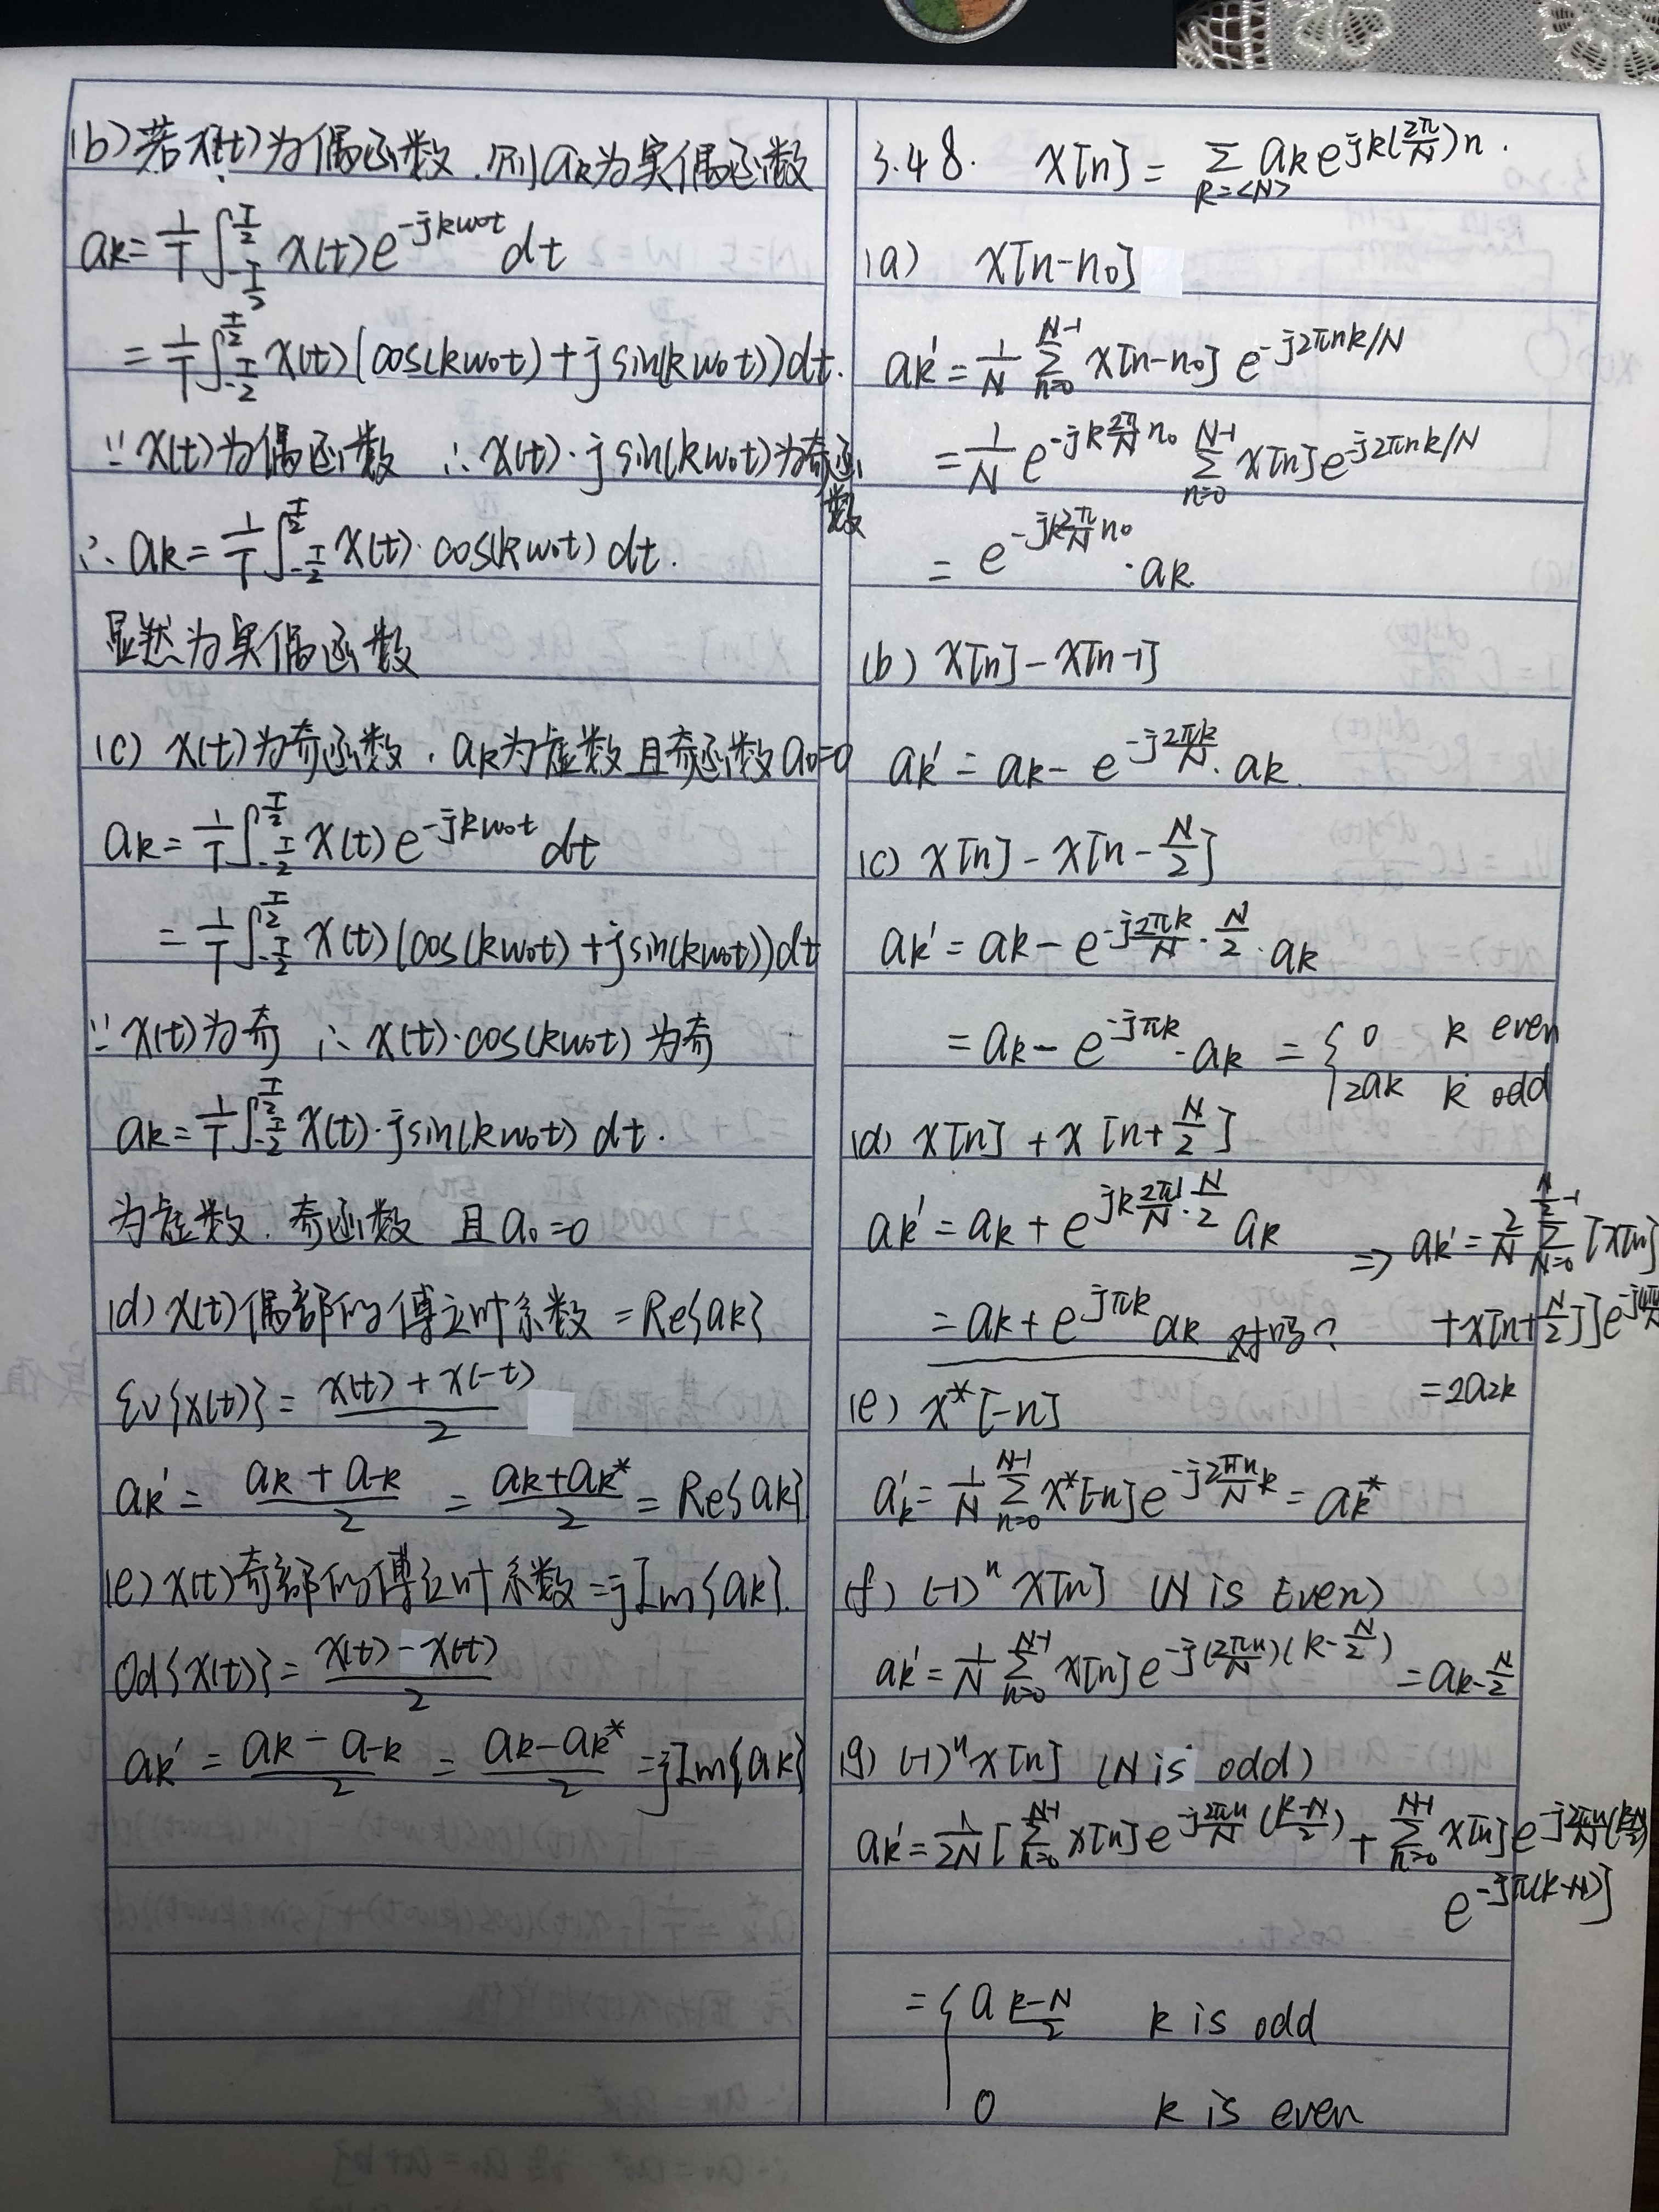 (b) 若x(t)为偶函数.则ak为实偶函数
ak = 1/T ∫_{-T/2}^{T/2} x(t) e^{-jkw₀t} dt
= 1/T ∫_{-T/2}^{T/2} x(t) (cos(kw₀t) + j sin(kw₀t)) dt.
∵ x(t)为偶函数 ∴ x(t)·j sin(kw₀t)为奇函数
∴ ak = 1/T ∫_{-T/2}^{T/2} x(t)·cos(kw₀t) dt.
显然为实偶函数
(c) x(t)为奇函数,ak为虚数且奇函数a₀=0
ak = 1/T ∫_{-T/2}^{T/2} x(t) e^{-jkw₀t} dt
= 1/T ∫_{-T/2}^{T/2} x(t) (cos(kw₀t) + j sin(kw₀t)) dt
∵ x(t)为奇 ∴ x(t)·cos(kw₀t) 为奇
ak = 1/T ∫_{-T/2}^{T/2} x(t)·j sin(kw₀t) dt.
为虚数.奇函数 且a₀=0
(d) x(t)偶部的傅立叶系数 = Re{ak}
Ev{x(t)} = (x(t) + x(-t))/2
ak' = (ak + a-k)/2 = (ak + ak*)/2 = Re{ak}
(e) x(t)奇部的傅立叶系数 = jIm{ak}.
Od{x(t)} = (x(t) - x(-t))/2
ak' = (ak - a-k)/2 = (ak - ak*)/2 = jIm{ak}
3.48. x[n] = Σ_{k=<N>} ak e^{jk(2π/N)n}.
(a) x[n-n₀]
ak' = 1/N Σ_{n=0}^{N-1} x[n-n₀] e^{-j2πnk/N}
= 1/N e^{-jk(2π/N)n₀} Σ_{n=0}^{N-1} x[n] e^{-j2πnk/N}
= e^{-jk(2π/N)n₀} · ak.
(b) x[n] - x[n-1]
ak' = ak - e^{-j2πk/N} · ak.
(c) x[n] - x[n - N/2]
ak' = ak - e^{-j(2πk/N)·(N/2)} · ak
= ak - e^{-jπk} · ak = { 0 k even
2ak k odd
(d) x[n] + x[n + N/2]
ak' = ak + e^{jk(2π/N)·(N/2)} ak
= ak + e^{jπk} ak 对吗?
⇒ ak' = 2/N Σ_{N=0}^{N/2-1} [x[n]
+ x[n + N/2]] e^{-j4π
= 2a2k
(e) x*[-n]
ak' = 1/N Σ_{n=0}^{N-1} x*[-n] e^{-j(2πn/N)k} = ak*
(f) (-1)^n x[n] (N is Even)
ak' = 1/N Σ_{n=0}^{N-1} x[n] e^{-j(2πn/N)(k - N/2)} = a_{k-N/2}
(g) (-1)^n x[n] (N is odd)
ak' = 1/2N [Σ_{n=0}^{N-1} x[n] e^{-j(2πn/N)((k-N)/2)} + Σ_{n=0}^{N-1} x[n] e^{-j(2πn/N)((k-N)/2)}
e^{-jπ(k-N)}]
= { a_{(k-N)/2} k is odd
0 k is even